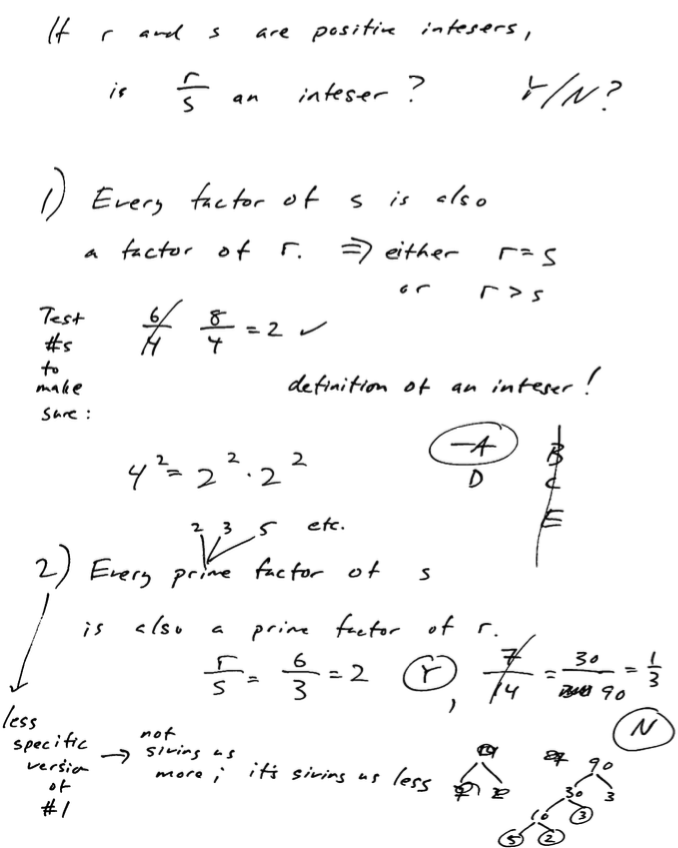 If r and s are positive integers,
is r/s an integer? Y/N?
1) Every factor of s is also
a factor of r. ⇒ either r=s
or r>s
Test
#s
to
make
sure:
6/4 8/4 = 2 ✓
definition of an integer!
4² = 2² · 2²
A
D
B
C
E
2 3 5 etc.
2) Every prime factor of s
is also a prime factor of r.
r/s = 6/3 = 2 Y, 7/14 = 30/90 = 1/3
N
less
specific
version
of
#1
→ not
giving us
more; it's giving us less
90
30 3
10 3
5 2